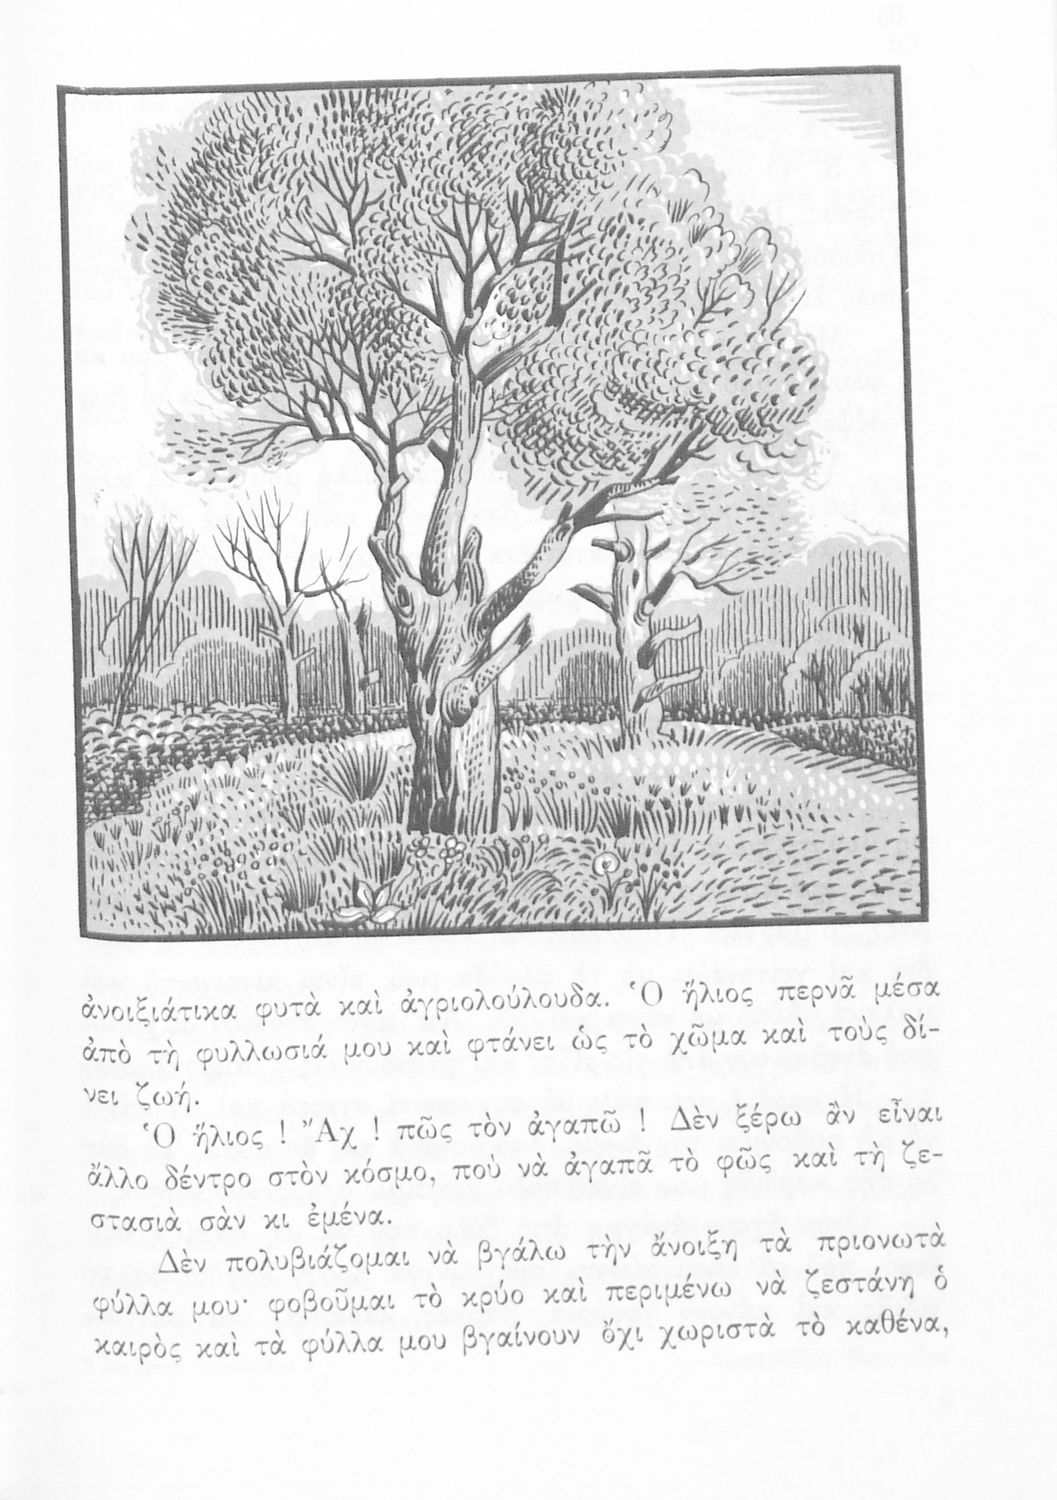 ἀνοιξιάτικα φυτὰ καὶ ἀγριολούλουδα. Ὁ ἥλιος περνᾶ μέσα
ἀπὸ τὴ φυλλωσιά μου καὶ φτάνει ὡς τὸ χῶμα καὶ τοὺς δί-
νει ζωή.
Ὁ ἥλιος ! Ἄχ ! πῶς τὸν ἀγαπῶ ! Δὲν ξέρω ἂν εἶναι
ἄλλο δέντρο στὸν κόσμο, ποὺ νὰ ἀγαπᾶ τὸ φῶς καὶ τὴ ζε-
στασιὰ σὰν κι ἐμένα.
Δὲν πολυβιάζομαι νὰ βγάλω τὴν ἄνοιξη τὰ πριονωτὰ
φύλλα μου· φοβοῦμαι τὸ κρύο καὶ περιμένω νὰ ζεστάνη ὁ
καιρὸς καὶ τὰ φύλλα μου βγαίνουν ὄχι χωριστὰ τὸ καθένα,